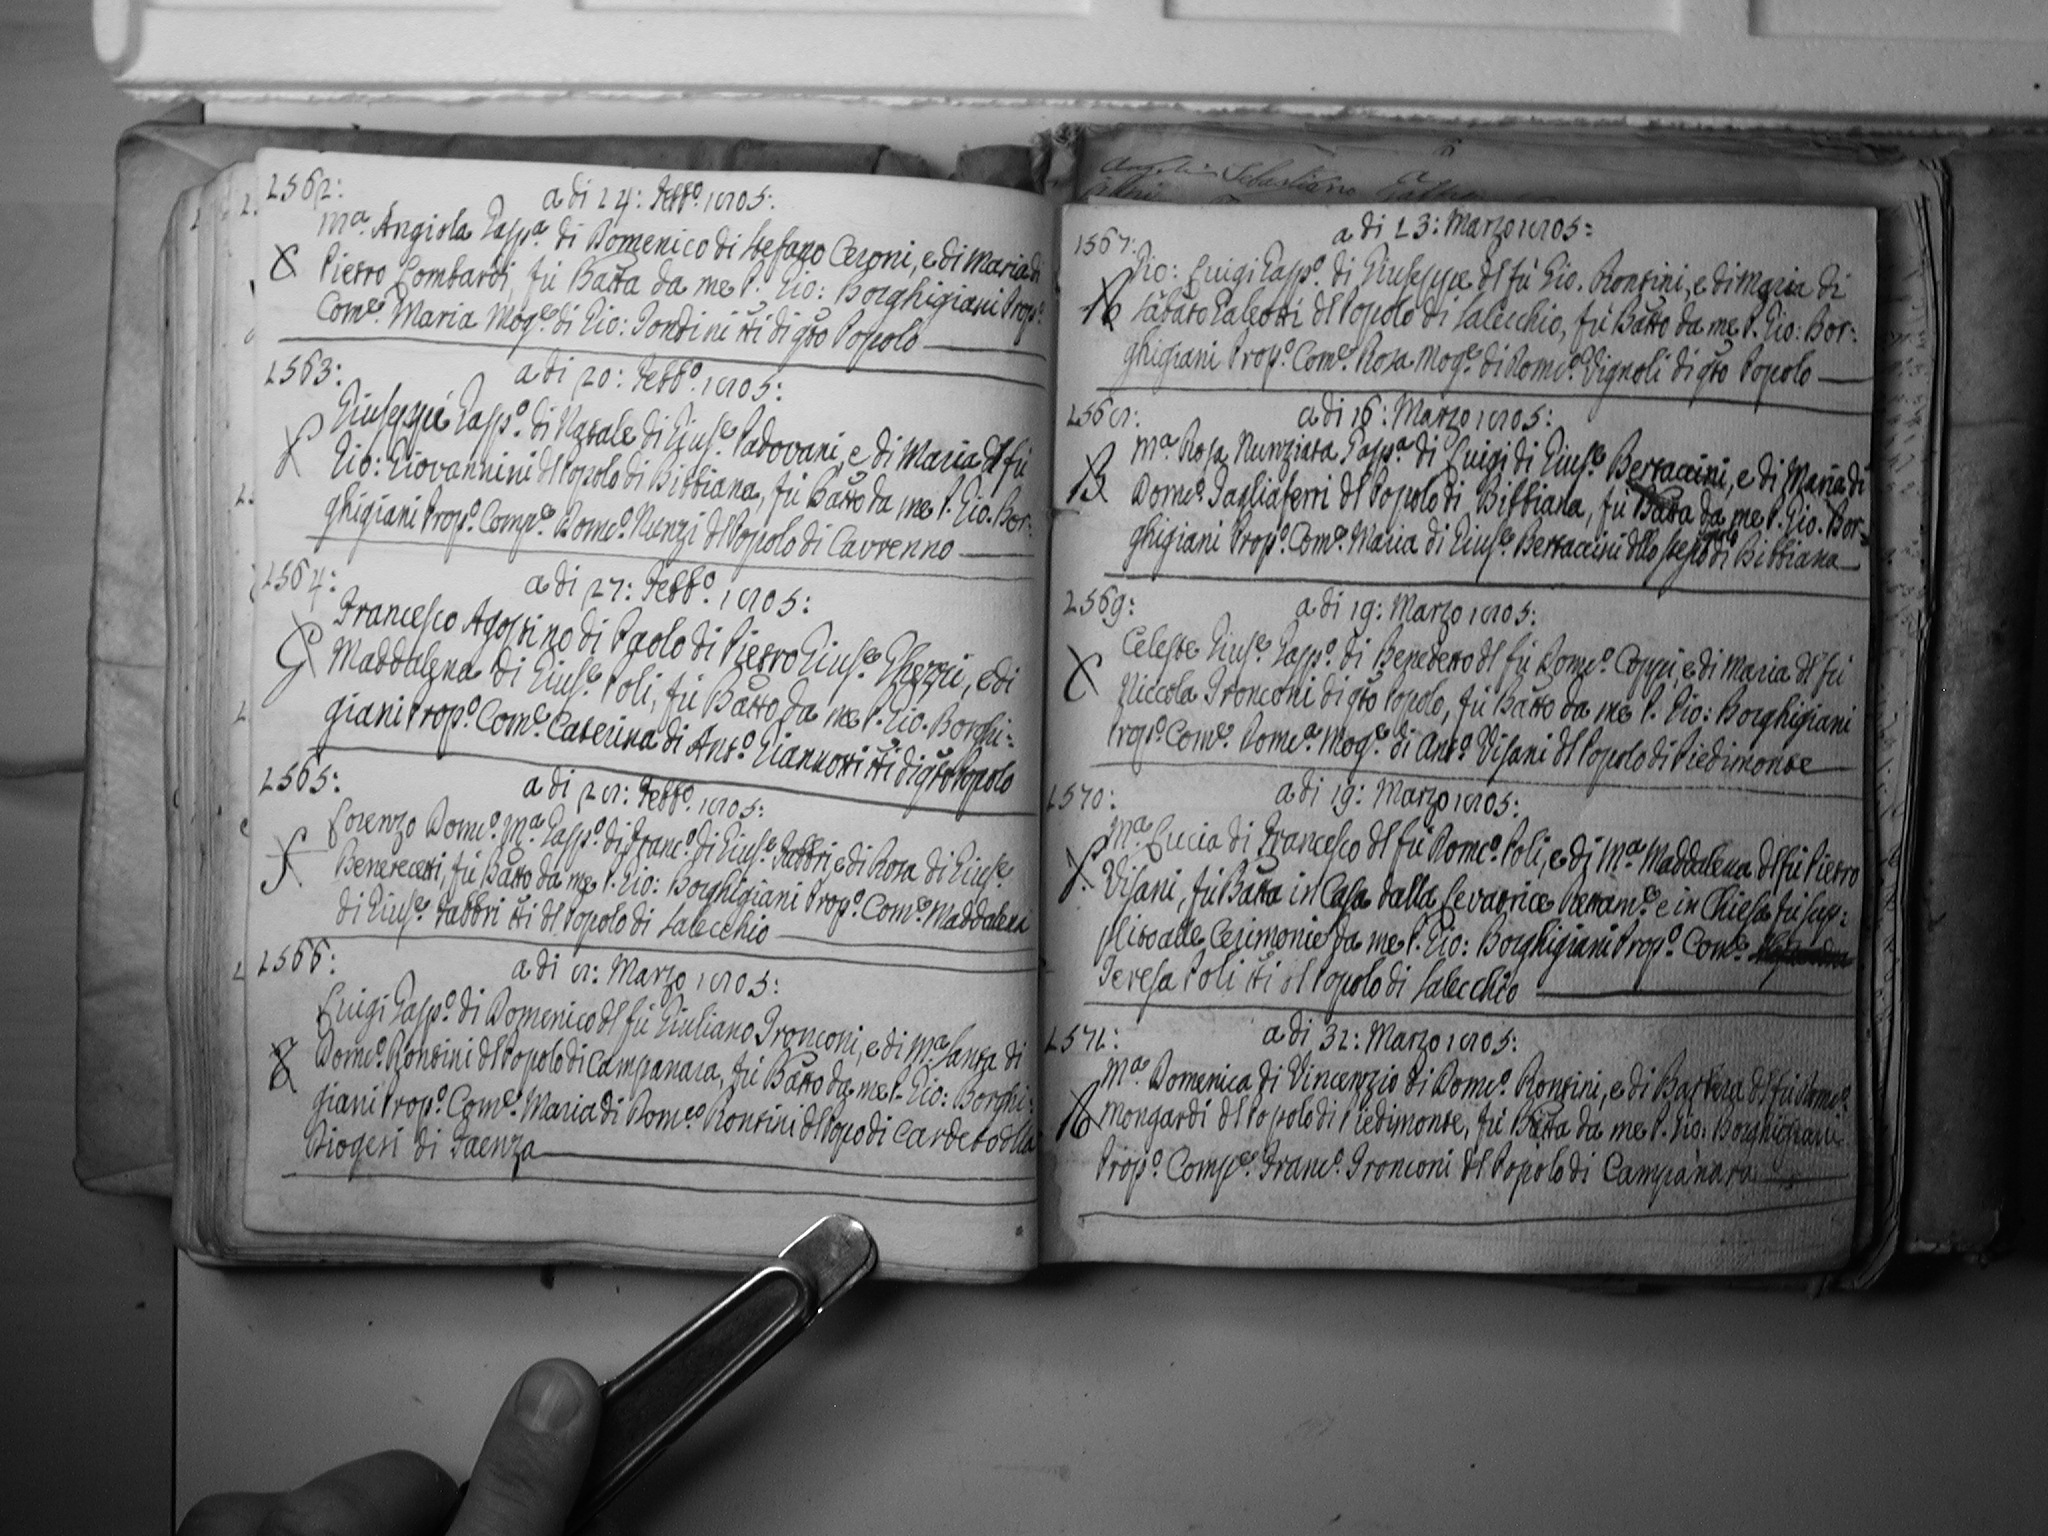 1562:
a di 24: Febb.º 1805:
M.ª Angiola Gasp.ª di Domenico di Stefano Ceroni, e di Maria di
C Pietro Lombardi, fù Batta da me P. Gio: Borghigiani Prop.º
Com.e Maria Mog.e di Gio: Tondini tti di qto Popolo
1563:
a di 20: Febb.º 1805:
Giuseppe Gasp.º di Natale di Gius.e Padovani, e di Maria dl fù
Gio: Giovannini dl Popolo di Bibbiana, fù Batto da me P. Gio. Bor:
ghigiani Prop.º Comp.e Dom.co Nunzi dl Popolo di Cavrenno
1564:
a di 27: Febb.º 1805:
Francesco Agostino di Paolo di Pietro Gius.e Gherri, e di
G Maddalena di Gius.e Poli, fù Batto da me P. Gio. Borghi:
giani Prop.º Com.e Caterina di Ant.º Giannotti tti di qto Popolo
1565:
a di 28: Febb.º 1805:
Lorenzo Dom.co M.ª Gasp.º di Franc.º di Gius.e Fabbri, e di Rosa di Gius.e
F Benericetti, fù Batto da me P. Gio: Borghigiani Prop.º Com.e Maddalena
di Gius.e Fabbri tti dl Popolo di Salecchio
1566:
a di 8: Marzo 1805:
Luigi Gasp.º di Domenico dl fù Giuliano Tronconi, e di M.ª Santa di
Dom.co Rontini dl Popolo di Campanara, fù Batto da me P. Gio: Borghi:
giani Prop.º Com.e Maria di Dom.co Rontini dl Popo di Cardeto dlla
Diogesi di Faenza
1567:
a di 13: Marzo 1805:
Gio: Luigi Gasp.º di Giuseppe dl fù Gio. Rontini, e di Maria di
R Sabato Galeotti dl Popolo di Salecchio, fù Batto da me P. Gio: Bor:
ghigiani Prop.º Com.e Rosa Mog.e di Dom.co Vignoli di qto Popolo
1568:
a di 16: Marzo 1805:
M.ª Rosa Nunziata Gasp.ª di Luigi di Gius.e Bertaccini, e di Maria di
B Dom.co Tagliaferri dl Popolo di Bibbiana, fù Batta da me P. Gio. Bor:
ghigiani Prop.º Com.e Maria di Gius.e Bertaccini dllo stesso di Bibbiana
1569:
a di 19: Marzo 1805:
Celeste Gius.e Gasp.º di Benedetto dl fù Dom.co Coppi, e di Maria dl fù
C Niccola Tronconi di qto Popolo, fù Batto da me P. Gio: Borghigiani
Prop.º Com.e Dom.ca Mog.e di Ant.º Visani dl Popolo di Piedimonte
1570:
a di 19: Marzo 1805:
M.ª Lucia di Francesco dl fù Dom.co Poli, e di M.ª Maddalena dl fù Pietro
P. Visani, fù Batta in Casa dalla Levatrice e in Chiesa fù sup:
plito alle Cerimonie da me P. Gio: Borghigiani Prop.º Com.e
Teresa Poli tti dl Popolo di Salecchio
1571:
a di 31: Marzo 1805:
M.ª Domenica di Vincenzio di Dom.co Rontini, e di Barbera dl fù Dom.co
R Mongardi dl Popolo di Piedimonte, fù Batta da me P. Gio: Borghigiani
Prop.º Comp.e Franc.º Tronconi dl Popolo di Campanara